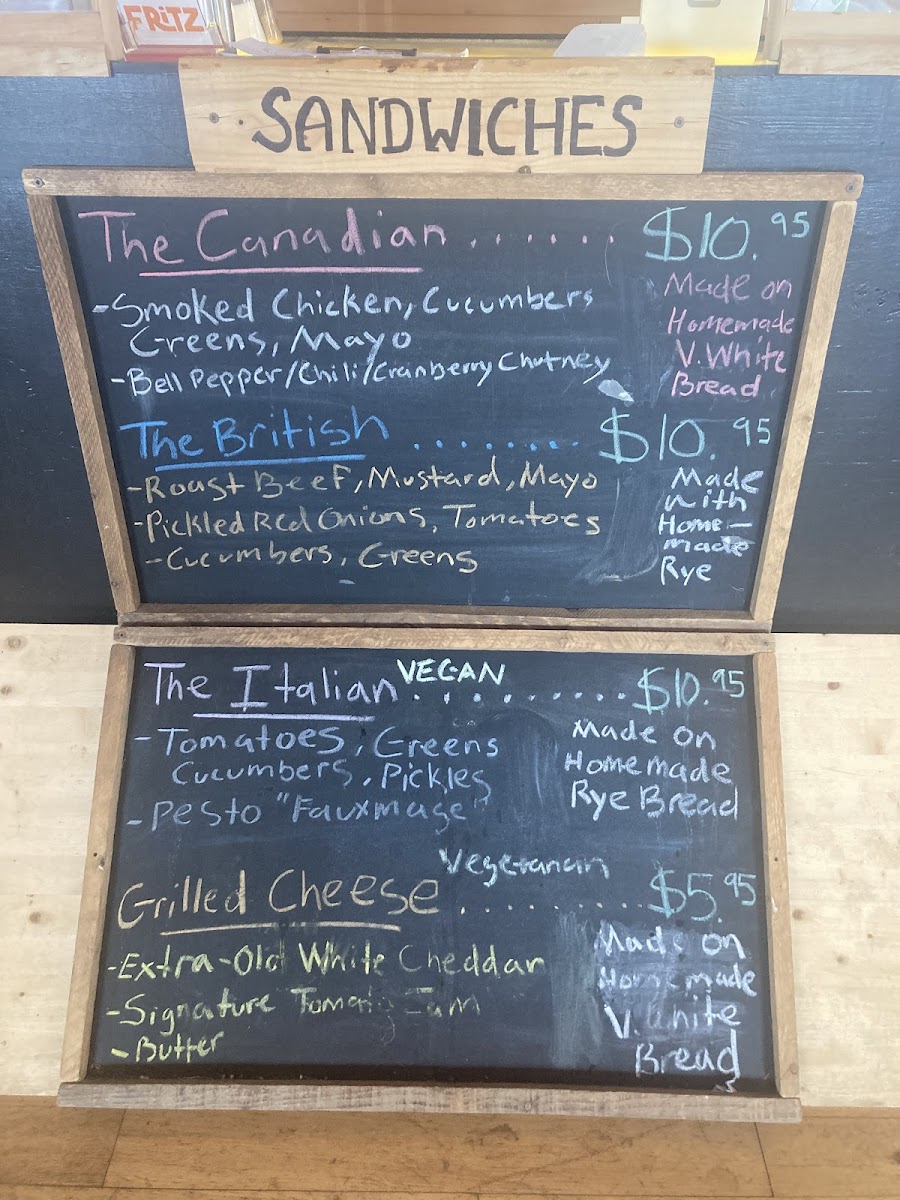 FRITZ
SANDWICHES
The Canadian ....... $10.95
Made on
Homemade
V. White
Bread
-Smoked Chicken, Cucumbers
Greens, Mayo
-Bell Pepper/Chili/Cranberry Chutney
The British ........ $10.95
Made
with
Home-
made
Rye
-Roast Beef, Mustard, Mayo
-Pickled Red Onions, Tomatoes
-Cucumbers, Greens
The Italian VEGAN ......... $10.95
Made on
Homemade
Rye Bread
-Tomatoes, Greens
Cucumbers, Pickles
-Pesto "Fauxmage"
Vegetarian
Grilled Cheese .......... $5.95
Made on
Homemade
V. White
Bread
-Extra-Old White Cheddar
-Signature Tomato Jam
-Butter